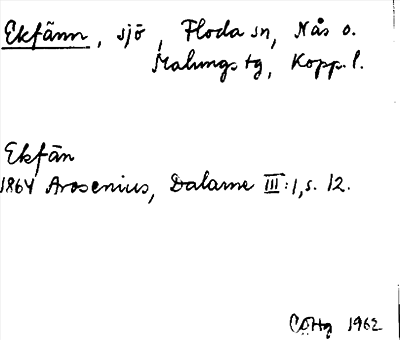 Ekfänn, sjö, Floda sn, Nås o.
Malungs tg, Kopp. l.
Ekfän
1864 Arosenius, Dalarne III:1, s. 12.
1962